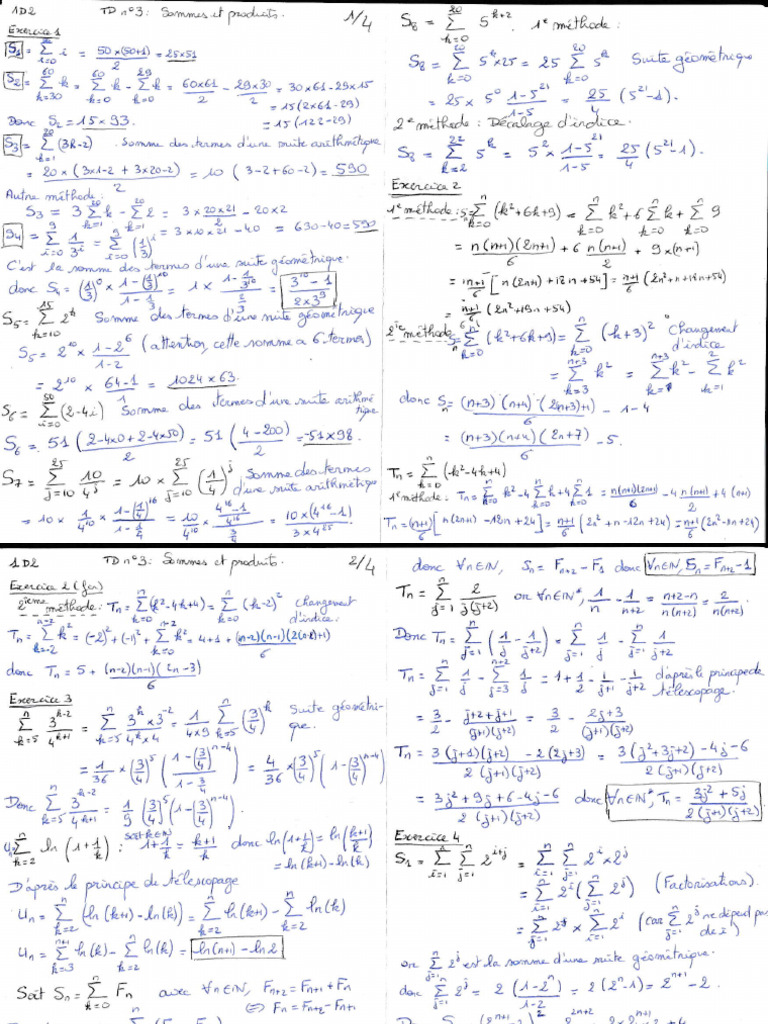 1D2 TD n°3: Sommes et produits. 1/4
Exercice 1
S₁ = ∑_{i=0}^{50} i = 50×(50+1)/2 = 25×51
S₂ = ∑_{k=30}^{60} k = ∑_{k=0}^{60} k - ∑_{k=0}^{29} k = 60×61/2 - 29×30/2 = 30×61-29×15
= 15(2×61-29)
Donc S₂ = 15×93. = 15(122-29)
S₃ = ∑_{k=1}^{20} (3k-2) . Somme des termes d'une suite arithmétique
= 20×(3×1-2+3×20-2)/2 = 10 (3-2+60-2) = 590
Autre méthode:
S₃ = 3∑k - ∑2 = 3×20×21/2 - 20×2
= 3×10×21 - 40 = 630-40=590
S₄ = ∑_{i=0}^{9} 1/3^i = ∑_{i=0}^{9} (1/3)^i
C'est la somme des termes d'une suite géométrique.
donc S₄ = (1/3)^0 × (1-(1/3)^10)/(1-1/3) = 1 × (1-1/3^10)/(2/3) = (3^10-1)/(2×3^9)
S₅ = ∑_{k=10}^{15} 2^k Somme des termes d'une suite géométrique
S₅ = 2^10 × (1-2^6)/(1-2) (attention, cette somme a 6 termes)
= 2^10 × (64-1)/1 = 1024×63.
S₆ = ∑_{i=0}^{50} (2-4i) Somme des termes d'une suite arithmétique
S₆ = 51(2-4×0+2-4×50)/2 = 51(4-200)/2 = -51×98.
S₇ = ∑_{j=10}^{25} 10/4^j = 10×∑_{j=10}^{25} (1/4)^j Somme des termes d'une suite arithmétique
= 10 × 1/4^10 × (1-(1/4)^16)/(1-1/4) = 10/4^10 × ((4^16-1)/4^16)/(3/4) = 10×(4^16-1)/(3×4^25)
S₈ = ∑_{k=0}^{20} 5^{k+2} . 1e méthode:
S₈ = ∑_{k=0}^{20} 5^k×25 = 25 ∑_{k=0}^{20} 5^k Suite géométrique
= 25 × 5^0 (1-5^21)/(1-5) = 25/4 (5^21-1).
2e méthode: Décalage d'indice.
S₈ = ∑_{k=2}^{22} 5^k = 5² × (1-5^21)/(1-5) = 25/4 (5^21-1).
Exercice 2
1e méthode: Sn = ∑_{k=0}^{n} (k²+6k+9) = ∑_{k=0}^{n} k² + 6∑_{k=0}^{n} k + ∑_{k=0}^{n} 9
= n(n+1)(2n+1)/6 + 6 n(n+1)/2 + 9×(n+1)
= (n+1)/6 [n(2n+1)+18n+54] = (n+1)/6 (2n²+n+18n+54)
= (n+1)/6 (2n²+19n+54)
2ie méthode: Sn = ∑_{k=0}^{n} (k²+6k+9) = ∑_{k=0}^{n} (k+3)² Changement d'indice
= ∑_{k=3}^{n+3} k² = ∑_{k=1}^{n+3} k² - ∑_{k=1}^{2} k²
donc Sn = (n+3)(n+4)(2(n+3)+1)/6 - 1-4
= (n+3)(n+4)(2n+7)/6 - 5.
Tn = ∑_{k=0}^{n} (k²-4k+4)
1e méthode: Tn = ∑_{k=0}^{n} k² - 4∑_{k=0}^{n} k + 4∑_{k=0}^{n} 1 = n(n+1)(2n+1)/6 - 4 n(n+1)/2 + 4(n+1)
Tn = (n+1)/6 [n(2n+1) - 12n + 24] = (n+1)/6 (2n²+n-12n+24) = (n+1)/6 (2n²-11n+24)
1D2 TD n°3: Sommes et produits. 2/4
Exercice 2 (fin)
2ieme méthode: Tn = ∑_{k=0}^{n} (k²-4k+4) = ∑_{k=0}^{n} (k-2)² changement d'indice:
Tn = ∑_{k=-2}^{n-2} k² = (-2)²+(-1)²+∑_{k=0}^{n-2} k² = 4+1+(n-2)(n-1)(2(n-2)+1)/6
donc Tn = 5 + (n-2)(n-1)(2n-3)/6
Exercice 3
∑_{k=5}^{n} 3^{k-2}/4^{k+1} = ∑_{k=5}^{n} 3^k×3^{-2}/(4^k×4) = 1/(4×9) ∑_{k=5}^{n} (3/4)^k Suite géométrique.
= 1/36 × (3/4)^5 (1-(3/4)^{n-4})/(1-3/4) = 4/36 × (3/4)^5 (1-(3/4)^{n-4})
Donc ∑_{k=5}^{n} 3^{k-2}/4^{k+1} = 1/9 (3/4)^5 (1-(3/4)^{n-4}).
Un = ∑_{k=2}^{n} ln(1+1/k) : soit k∈ℕ 1+1/k = (k+1)/k donc ln(1+1/k) = ln((k+1)/k)
= ln(k+1) - ln(k)
D'après le principe de télescopage
Un = ∑_{k=2}^{n} (ln(k+1)-ln(k)) = ∑_{k=2}^{n} ln(k+1) - ∑_{k=2}^{n} ln(k)
Un = ∑_{k=3}^{n+1} ln(k) - ∑_{k=2}^{n} ln(k) = ln(n+1) - ln2
Soit Sn = ∑_{k=0}^{n} Fn avec ∀n∈ℕ, Fn+2 = Fn+1 + Fn
⇔ Fn = Fn+2 - Fn+1
donc ∀n∈ℕ, Sn = Fn+2 - F1 donc ∀n∈ℕ, Sn = Fn+2 - 1
Tn = ∑_{j=1}^{n} 2/(j(j+2)) or ∀n∈ℕ*, 1/n - 1/(n+2) = (n+2-n)/(n(n+2)) = 2/(n(n+2))
Donc Tn = ∑_{j=1}^{n} (1/j - 1/(j+2)) = ∑_{j=1}^{n} 1/j - ∑_{j=1}^{n} 1/(j+2)
Tn = ∑_{j=1}^{n} 1/j - ∑_{j=3}^{n+2} 1/j = 1+1/2 - 1/(j+1) - 1/(j+2) d'après le principe de télescopage.
= 3/2 - (j+2+j+1)/((j+1)(j+2)) = 3/2 - (2j+3)/((j+1)(j+2))
Tn = (3(j+1)(j+2) - 2(2j+3))/(2(j+1)(j+2)) = (3(j²+3j+2)-4j-6)/(2(j+1)(j+2))
= (3j²+9j+6-4j-6)/(2(j+1)(j+2)) donc ∀n∈ℕ*, Tn = (3j²+5j)/(2(j+1)(j+2))
Exercice 4
S₁ = ∑_{i=1}^{n} ∑_{j=1}^{n} 2^{i+j} = ∑_{i=1}^{n} ∑_{j=1}^{n} 2^i×2^j
= ∑_{i=1}^{n} 2^i (∑_{j=1}^{n} 2^j) (Factorisations).
= ∑_{j=1}^{n} 2^j × ∑_{i=1}^{n} 2^i (car ∑_{j=1}^{n} 2^j ne dépend pas de i)
or ∑_{j=1}^{n} 2^j est la somme d'une suite géométrique.
donc ∑_{j=1}^{n} 2^j = 2(1-2^n)/(1-2) = 2(2^n-1) = 2^{n+1} - 2.